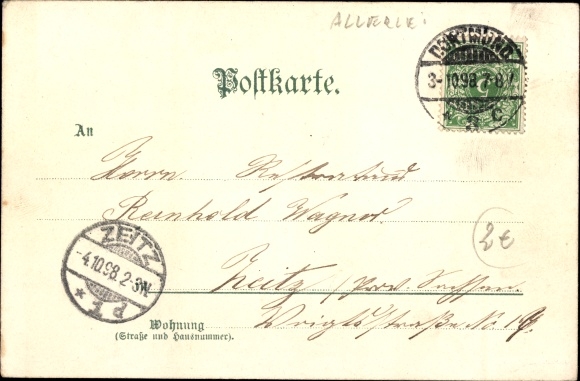 ALLERLEI
DORTMUND
3-10.98.7-8V
* 3 C
5
Postkarte.
An
Herrn
Reinhold Wagner
2€
Zeitz / Prov. Sachsen.
ZEITZ
-4.10.98.2-3N.
* P.A.
Wohnung
(Straße und Hausnummer).
Voigtsstraße No 19.